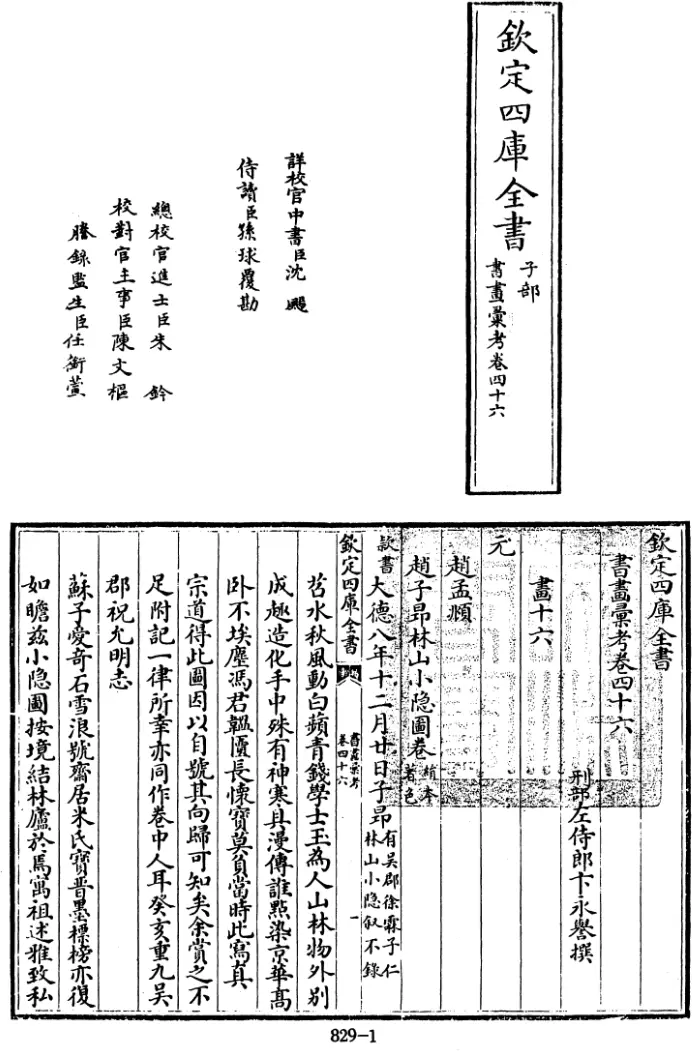 欽定四庫全書
子部
書畫彙考卷四十六
詳校官中書臣沈颺
侍讀臣孫球覆勘
總校官進士臣朱鈐
校對官主事臣陳文樞
謄錄監生臣任銜蕙
欽定四庫全書
書畫彙考卷四十六
刑部左侍郎卞永譽撰
畫十六
元
趙孟頫
趙子昂林山小隱圖卷
絹本
著色
款書
大德八年十二月廿日子昂
有吳郡徐霖子仁
林山小隱叙不錄
欽定四庫全書
書畫彙考
卷四十六
一
苕水秋風動白蘋青錢學士玉為人山林物外別
成趣造化手中殊有神寒具漫傳誰點染京華髙
卧不埃塵馮君韞匵長懷寶莫負當時此寫真
宗道得此圖因以自號其向歸可知矣余賞之不
足附記一律所幸亦同作卷中人耳癸亥重九吳
郡祝允明志
蘇子愛奇石雪浪號齋居米氏寶晉墨標榜亦復
如瞻兹小隱圖按境結林廬於焉寓祖述雅致私
829-1